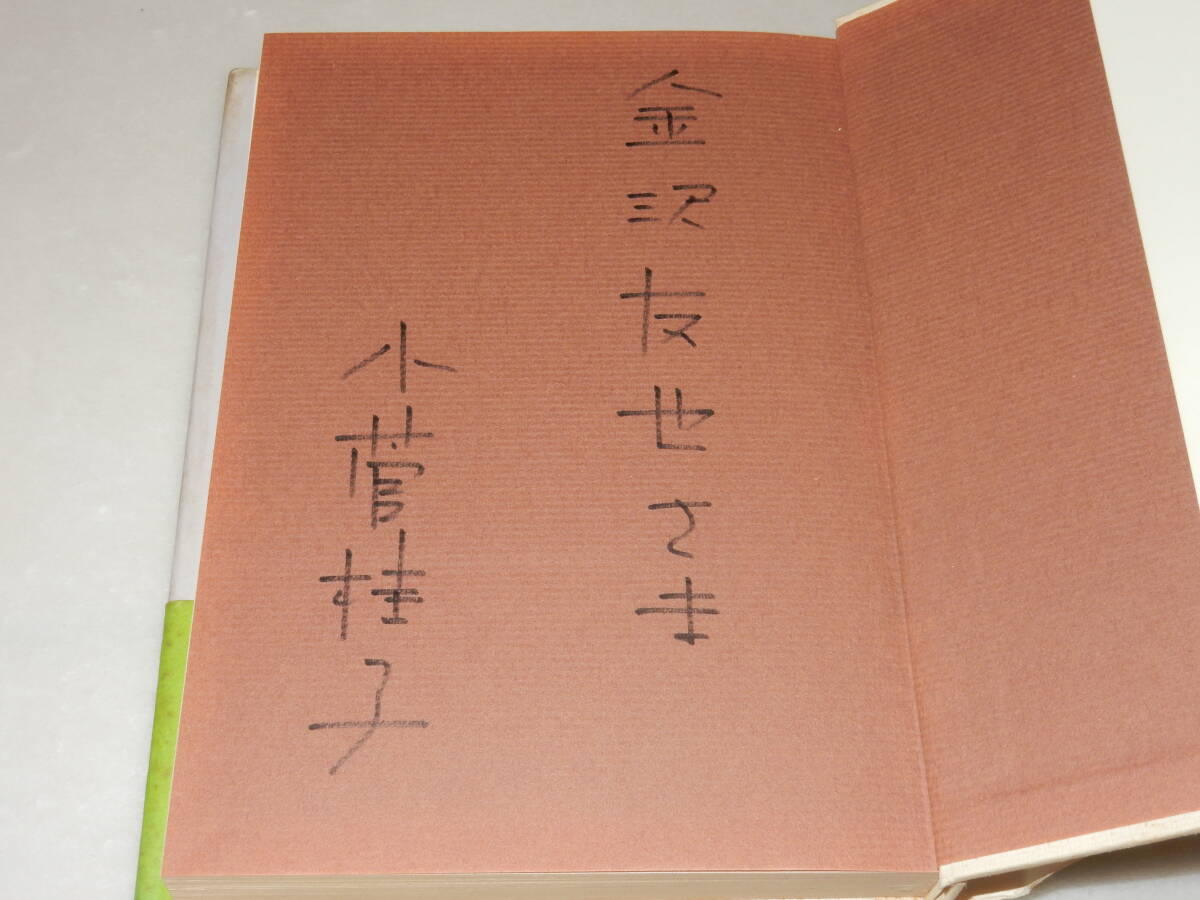 金沢友也さま
小菅桂子